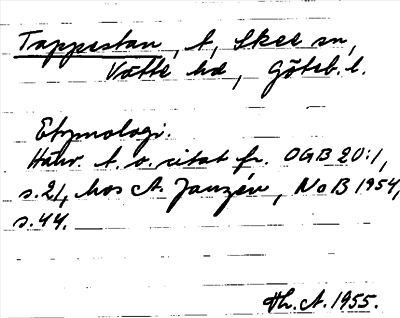 Tappestan, t, Skee sn,
Vätte hd, Göteb. l.
Etymologi.
Hänv. t. o. citat fr. OGB 20:1,
s. 21, hos A. Janzén, NoB 1954,
s. 44.
Th. A. 1955.